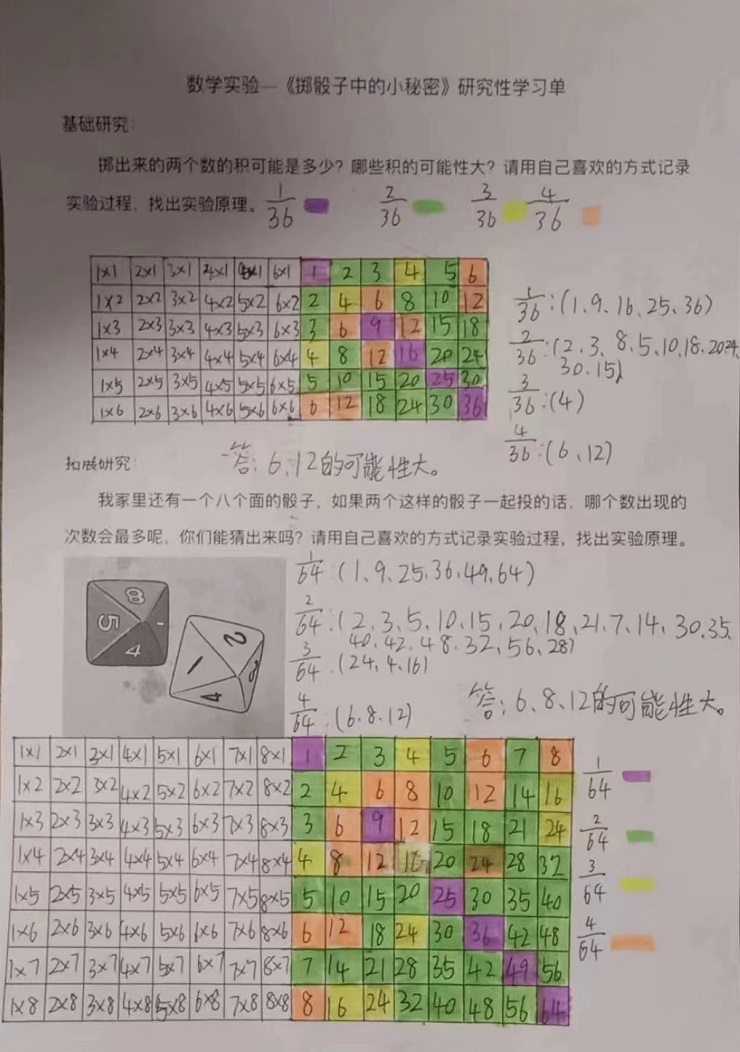 数学实验—《掷骰子中的小秘密》研究性学习单
基础研究：
掷出来的两个数的积可能是多少？哪些积的可能性大？请用自己喜欢的方式记录
实验过程，找出实验原理。 1/36 2/36 3/36 4/36
1×1 2×1 3×1 4×1 5×1 6×1 1 2 3 4 5 6
1×2 2×2 3×2 4×2 5×2 6×2 2 4 6 8 10 12
1×3 2×3 3×3 4×3 5×3 6×3 3 6 9 12 15 18
1×4 2×4 3×4 4×4 5×4 6×4 4 8 12 16 20 24
1×5 2×5 3×5 4×5 5×5 6×5 5 10 15 20 25 30
1×6 2×6 3×6 4×6 5×6 6×6 6 12 18 24 30 36
1/36:(1、9、16、25、36)
2/36:(2、3、8、5、10、18、20、24、
30、15)
3/36:(4)
4/36:(6、12)
答：6、12的可能性大。
拓展研究：
我家里还有一个八个面的骰子，如果两个这样的骰子一起投的话，哪个数出现的
次数会最多呢，你们能猜出来吗？请用自己喜欢的方式记录实验过程，找出实验原理。
8 5 4 1
2 1 4
1/64:(1、9、25、36、49、64)
2/64:(2、3、5、10、15、20、18、21、7、14、30、35、
40、42、48、32、56、28)
3/64:(24、4、16)
4/64:(6、8、12)
答：6、8、12的可能性大。
1×1 2×1 3×1 4×1 5×1 6×1 7×1 8×1 1 2 3 4 5 6 7 8
1×2 2×2 3×2 4×2 5×2 6×2 7×2 8×2 2 4 6 8 10 12 14 16
1×3 2×3 3×3 4×3 5×3 6×3 7×3 8×3 3 6 9 12 15 18 21 24
1×4 2×4 3×4 4×4 5×4 6×4 7×4 8×4 4 8 12 16 20 24 28 32
1×5 2×5 3×5 4×5 5×5 6×5 7×5 8×5 5 10 15 20 25 30 35 40
1×6 2×6 3×6 4×6 5×6 6×6 7×6 8×6 6 12 18 24 30 36 42 48
1×7 2×7 3×7 4×7 5×7 6×7 7×7 8×7 7 14 21 28 35 42 49 56
1×8 2×8 3×8 4×8 5×8 6×8 7×8 8×8 8 16 24 32 40 48 56 64
1/64
2/64
3/64
4/64